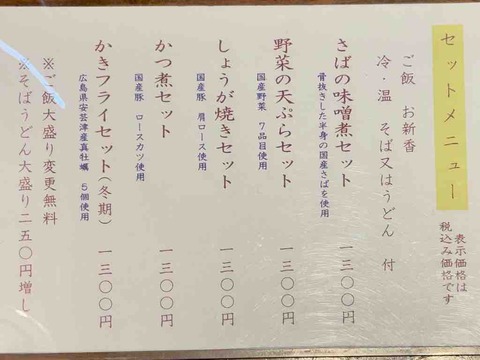 セットメニュー
表示価格は
税込み価格です
ご飯 お新香
冷・温 そば又はうどん 付
さばの味噌煮セット 一三〇〇円
骨抜きした半身の国産さばを使用
野菜の天ぷらセット 一三〇〇円
国産野菜 7品目使用
しょうが焼きセット 一三〇〇円
国産豚 肩ロース使用
かつ煮セット 一三〇〇円
国産豚 ロースカツ使用
かきフライセット(冬期) 一三〇〇円
広島県安芸津産真牡蠣 5個使用
※ご飯大盛り変更無料
※そばうどん大盛り二五〇円増し